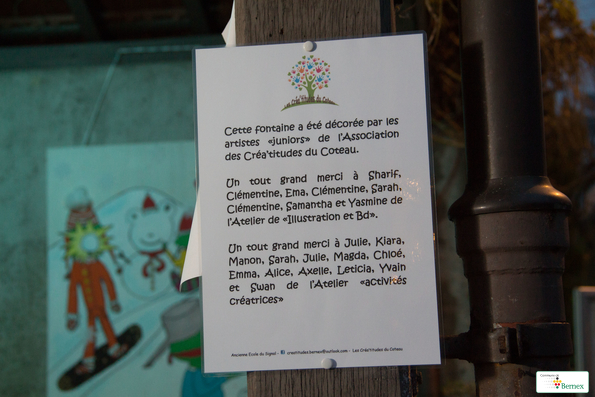 Cette fontaine a été décorée par les
artistes «juniors» de l'Association
des Créa'titudes du Coteau.
Un tout grand merci à Sharif,
Clémentine, Ema, Clémentine, Sarah,
Clémentine, Samantha et Yasmine de
l'Atelier de «Illustration et Bd».
Un tout grand merci à Julie, Kiara,
Manon, Sarah, Julie, Magda, Chloé,
Emma, Alice, Axelle, Leticia, Yvain
et Swan de l'Atelier «activités
créatrices»
Ancienne Ecole du Signal - creatitudes.bernex@outlook.com - Les Créa'titudes du Coteau
Commune de
Bernex